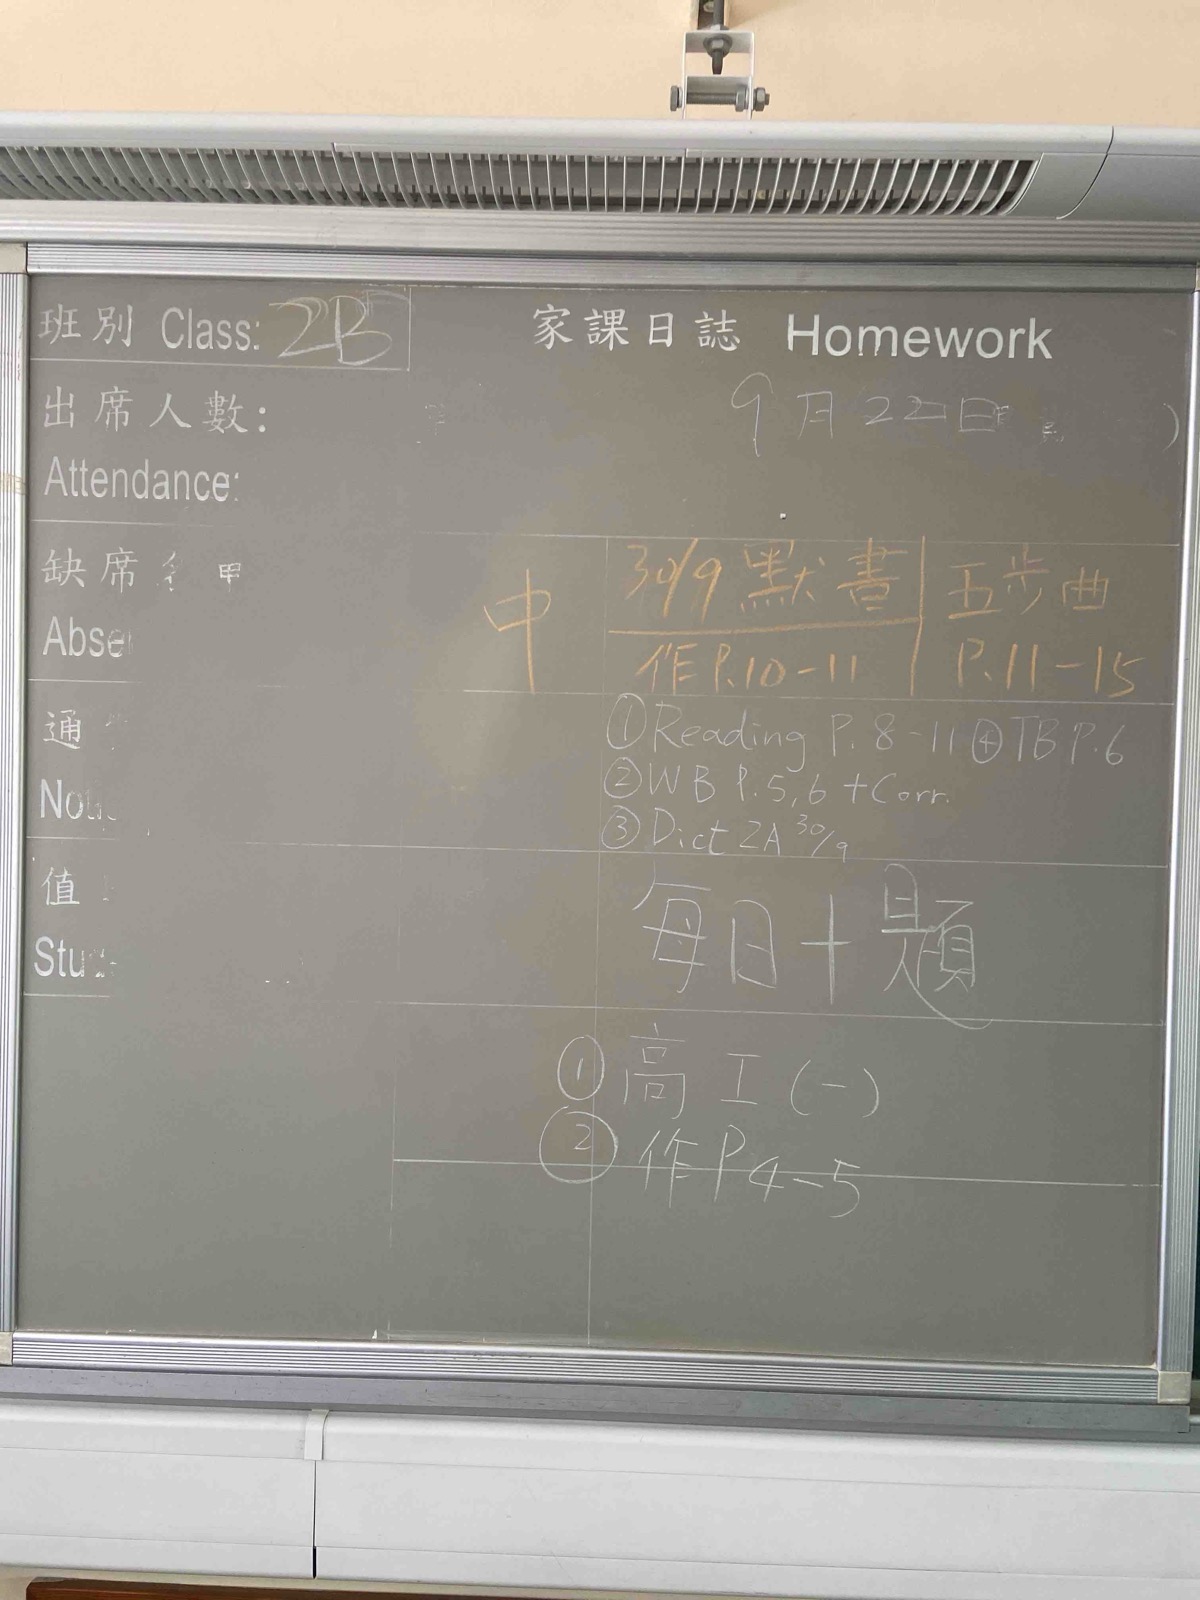 班別 Class: 2B
家課日誌 Homework
出席人數:
9月22日 )
Attendance:
缺席 甲
中 30/9 默書 五步曲
Abse
作P.10-11 P.11-15
通
① Reading P. 8-11 ⊕ TB P.6
② WB P.5,6 + Corr.
③ Dict 2A 30/9
值
每日十題
Stu
① 高工(一)
② 作P 4-5